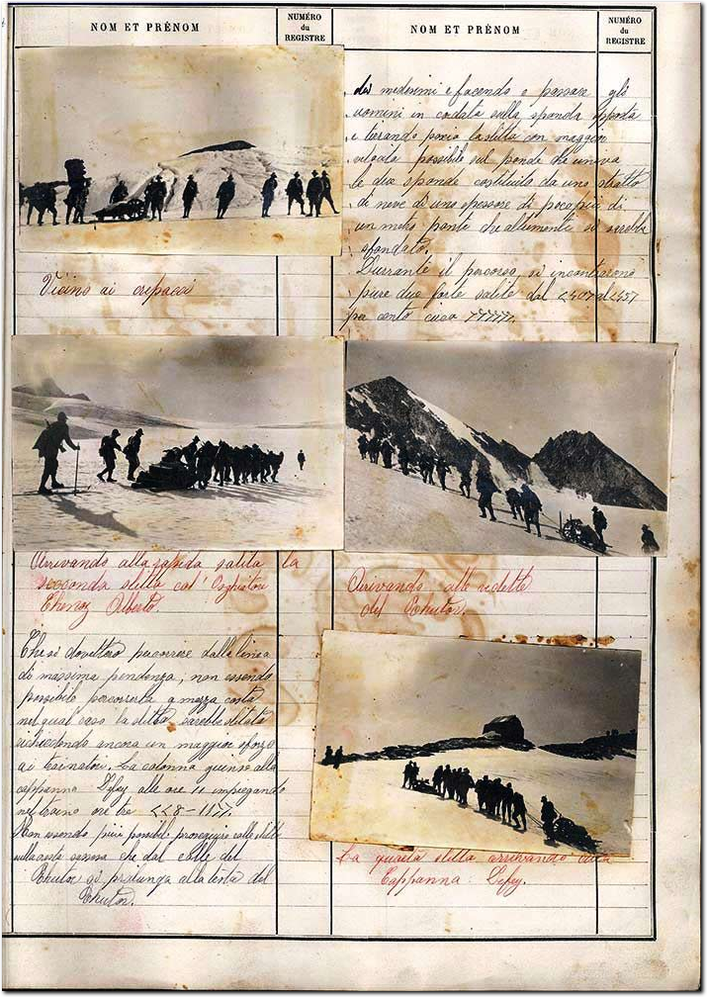 NOM ET PRÉNOM
NUMÉRO
du
REGISTRE
NOM ET PRÉNOM
NUMÉRO
du
REGISTRE
Vicino ai crepacci
Arrivando alla rapida salita la
seconda slitta col'
Thenoz Alberto.
Che si dovettero percorrere dalla linea
di massima pendenza, non essendo
possibile percorrerla a mezza costa
nel qual caso la slitta sarebbe slitata
richiedendo ancora un maggior sforzo
ai trainatori. La colonna giunse alla
cappanna Defey alle ore 11 impiegando
nel traino ore tre
Non essendo più possibile proseguire colle slitte
sulla cresta che dal colle del
Rhutor si prolunga alla testa del
Rhutor.
dei medesimi e facendo e passare gli
uomini in cordata sulla sponda opposta
e tirando poscia la slitta con maggior
velocità possibile sul ponte che univa
le due sponde costituito da uno stratto
di neve di uno spessore di poco più di
un metro ponte che altrimenti si sarebbe
sfondato.
Durrante il percorso, si incontrarono
pure due forte salite dal al
per cento circa
Arrivando alle vedette
del Rhutor.
La quarta slitta arrivando alla
Cappanna Defey.